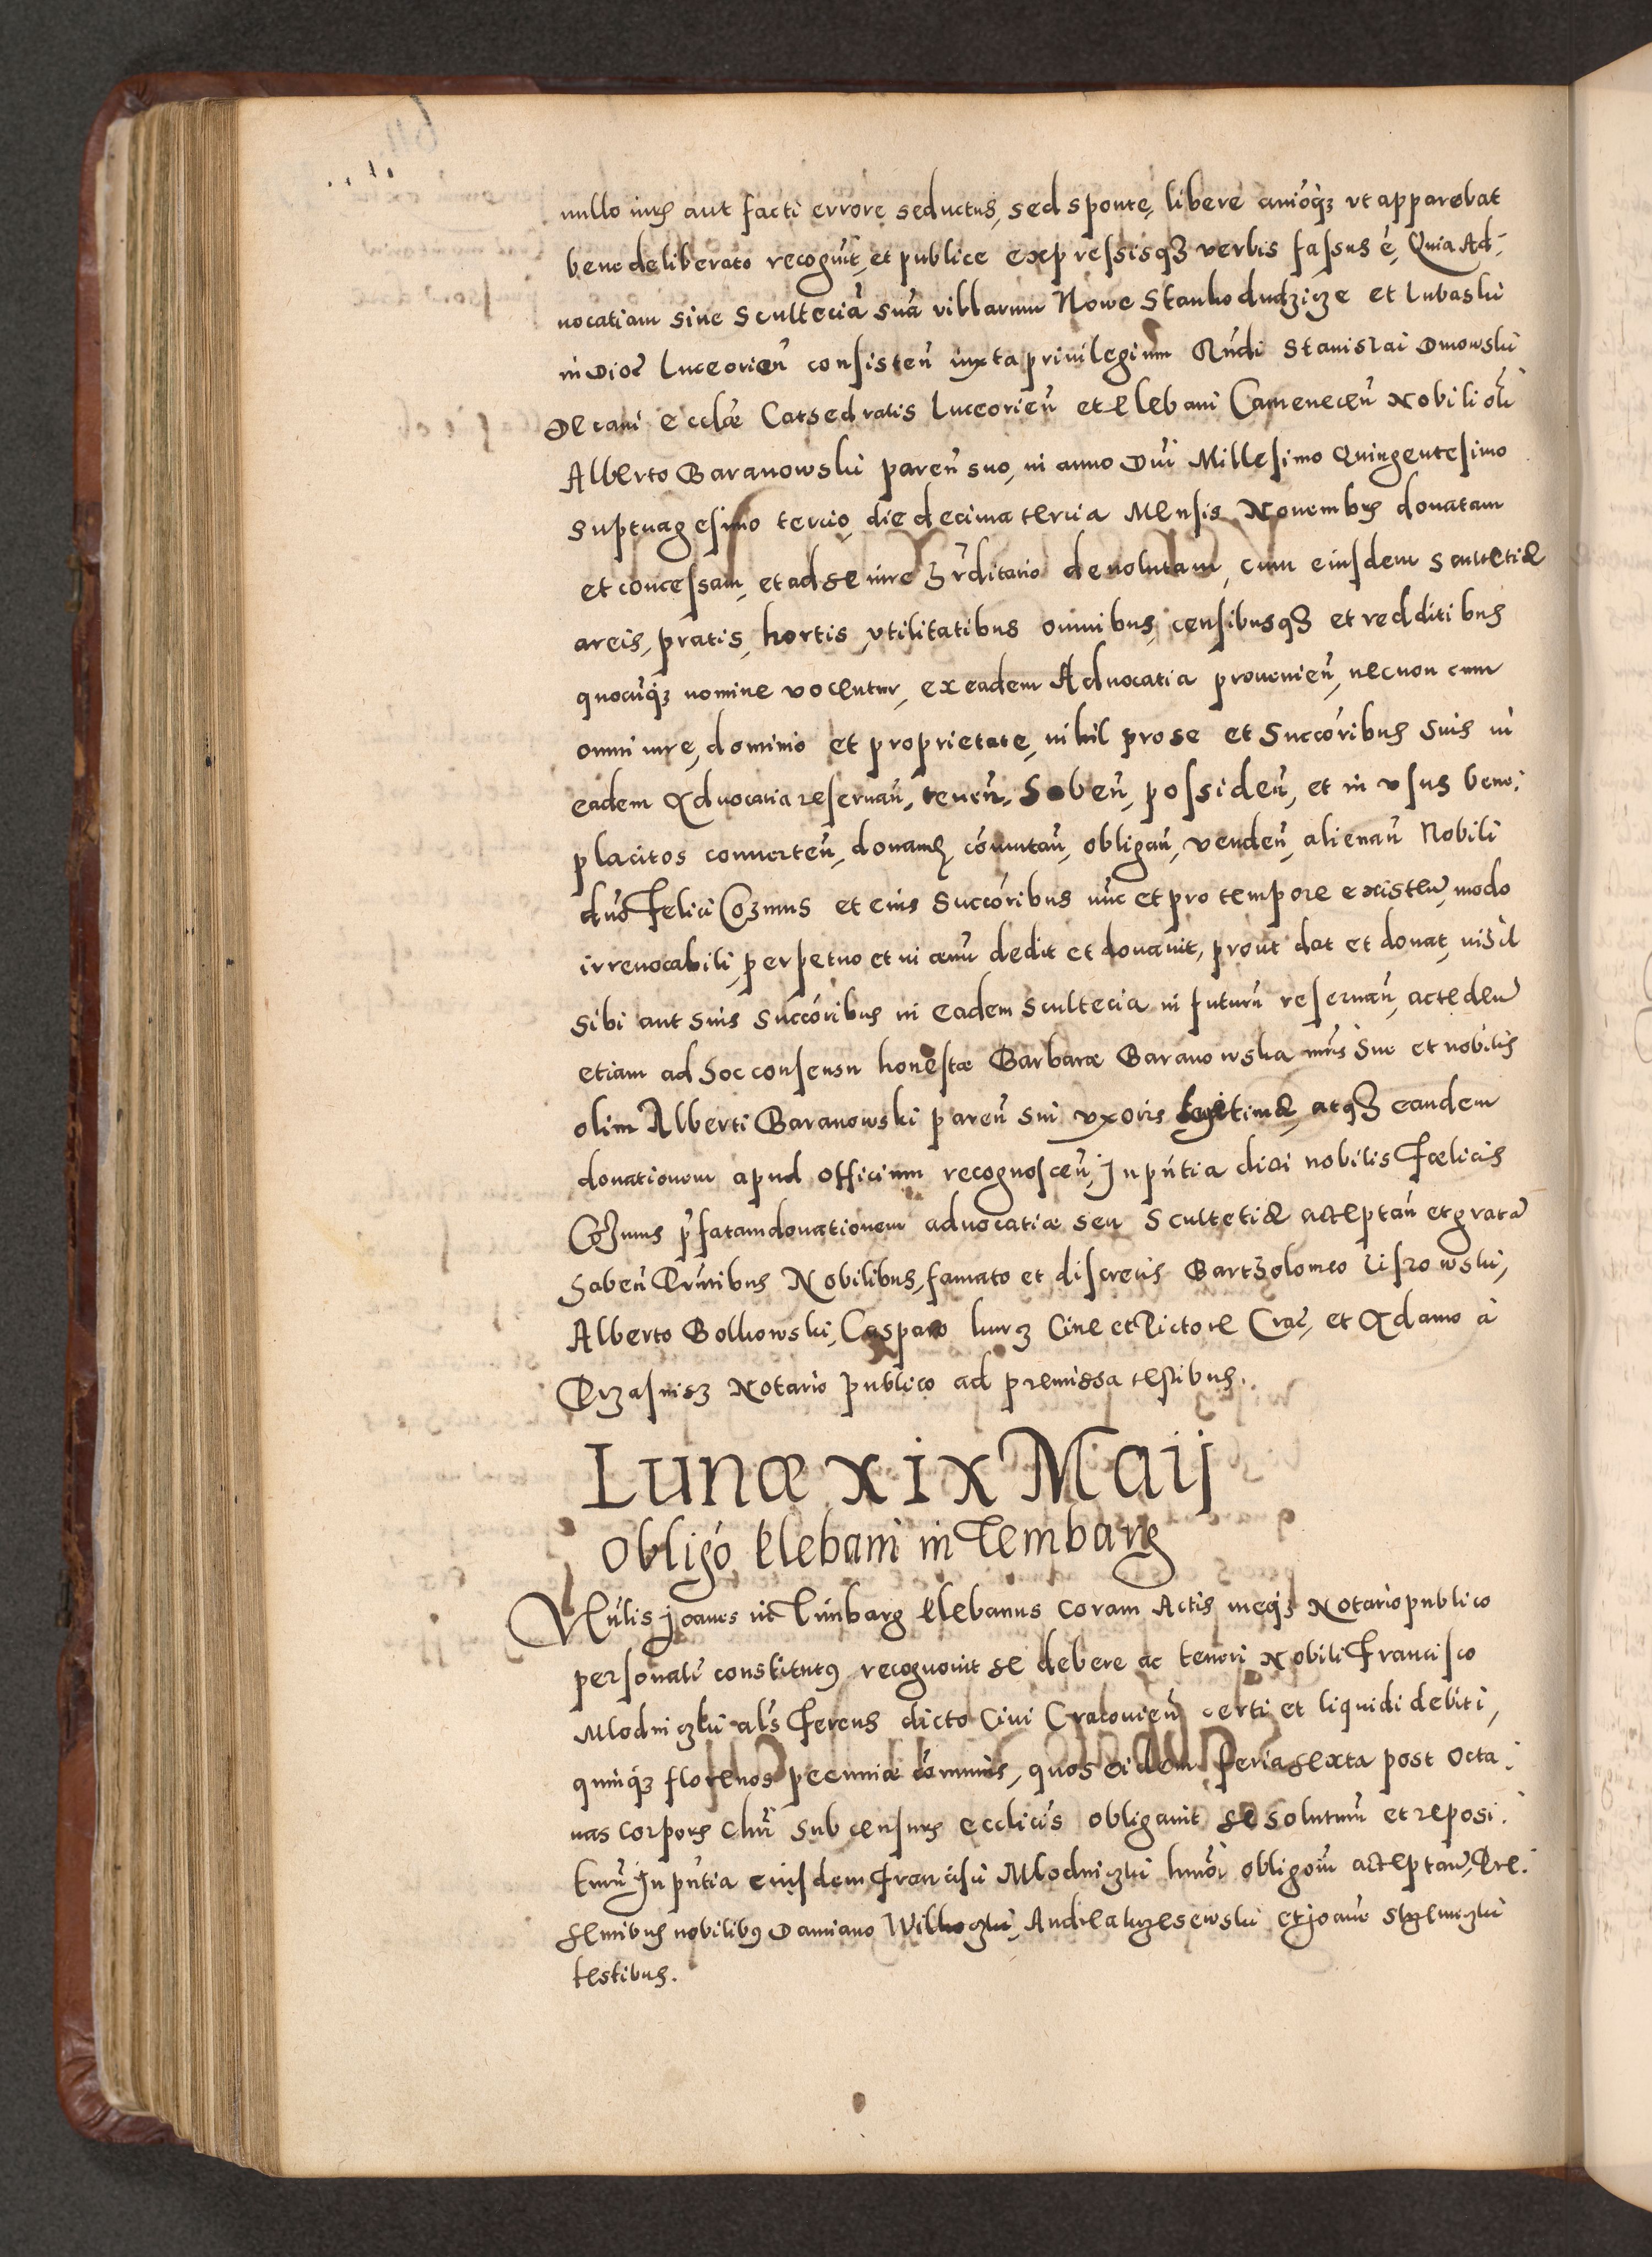 nullo iuris aut facti errore seductus, sed sponte, libere anīoq́ꝫ vt apparebat
bene deliberato recoguit, et publice expressisqꝫ verbis fassus ē, Quia Ad-
uocatiam siue Scultecia̅ sua̅ villarum Nowe Stankodudzicze et Lubaski
in Dioc̅ Luceorien̅ consisten̅ iuxta priuilegium Rn̅di Stanislai Dmowski
Decani eccl̅æ Cathedralis Luceorien̅ et Plebani Camenecen̅ Nobili oli̅
Alberto Baranowski paren̅ suo, in anno Dn̅i Millesimo Quingentesimo
Suptuagesimo tercio, die decima tercia Mensis Nouembris donatam
et concessam, et ad se iure hr̅ditario deuolutam, cum eiusdem Scultetiæ
areis, pratis, hortis, vtilitatibus omnibus, censibusqꝫ et redditibus
quocu̅q́ꝫ nomine vocentur, ex eadem Aduocatia prouenien̅, necnon cum
omni iure, dominio et proprietate, nihil pro se et Succōribus suis in
eadem Aduocatia reseruan̅, tenen̅, haben̅, possiden̅, et in vsus bene-
placitos conuerten̅, donan̅, co̅mutan̅, obligan̅, venden̅, alienan̅ Nobili
dn̅o Felici Cozmus et eius Succōribus nu̅c et pro tempore existen̅, modo
irreuocabili, perpetuo et in æuu̅ dedit et donauit, prout dat et donat, nihil
sibi aut suis Succōribus in eadem Scultecia in futuru̅ reseruan̅, acceden̅
etiam ad hoc consensu honestæ Barbaræ Baranowska mr̅is suæ et nobilis
olim Alberti Baranowski paren̅ sui vxoris legitimæ, atqꝫ eandem
donationem apud officium recognoscen̅, In pn̅tia dicti nobilis Fœlicis
Cozmus p̅fatam donationem aduocatiæ seu Scultetiæ acceptan̅ et grata̅
haben̅ Prn̅tibus Nobilibus, famato et discretis Bartholomeo Lisrowski,
Alberto Bolkowski, Casparo kurcz Ciue et Pictore Crac̅, et Adamo à
Przasnisz Notario publico ad premissa testibus.
Lunæ XIX Maij
Obligo̅ Plebani in Tembarg
Vn̅lis Joanes in Timbarg Plebanus coram Actis meq́ꝫ Notario publico
personalr̅ constitutꝯ recognouit se debere ac teneri Nobili Francisco
Mlodniczki al̅s Ferens dicto Ciui Cracouien̅ certi et liquidi debiti,
quinq́ꝫ florenos pecuniæ co̅munis, quos eidem feria sexta post octa-
uas Corporis Chr̅i sub censuris ecclicis obligauit se soluturu̅ et reposi-
turu̅ In pn̅tia eiusdem Francisci Mlodniczki hmōi obligōm acceptan̅, Pre-
sentibus nobilibꝯ Damiano Andrea et Joane
testibus.